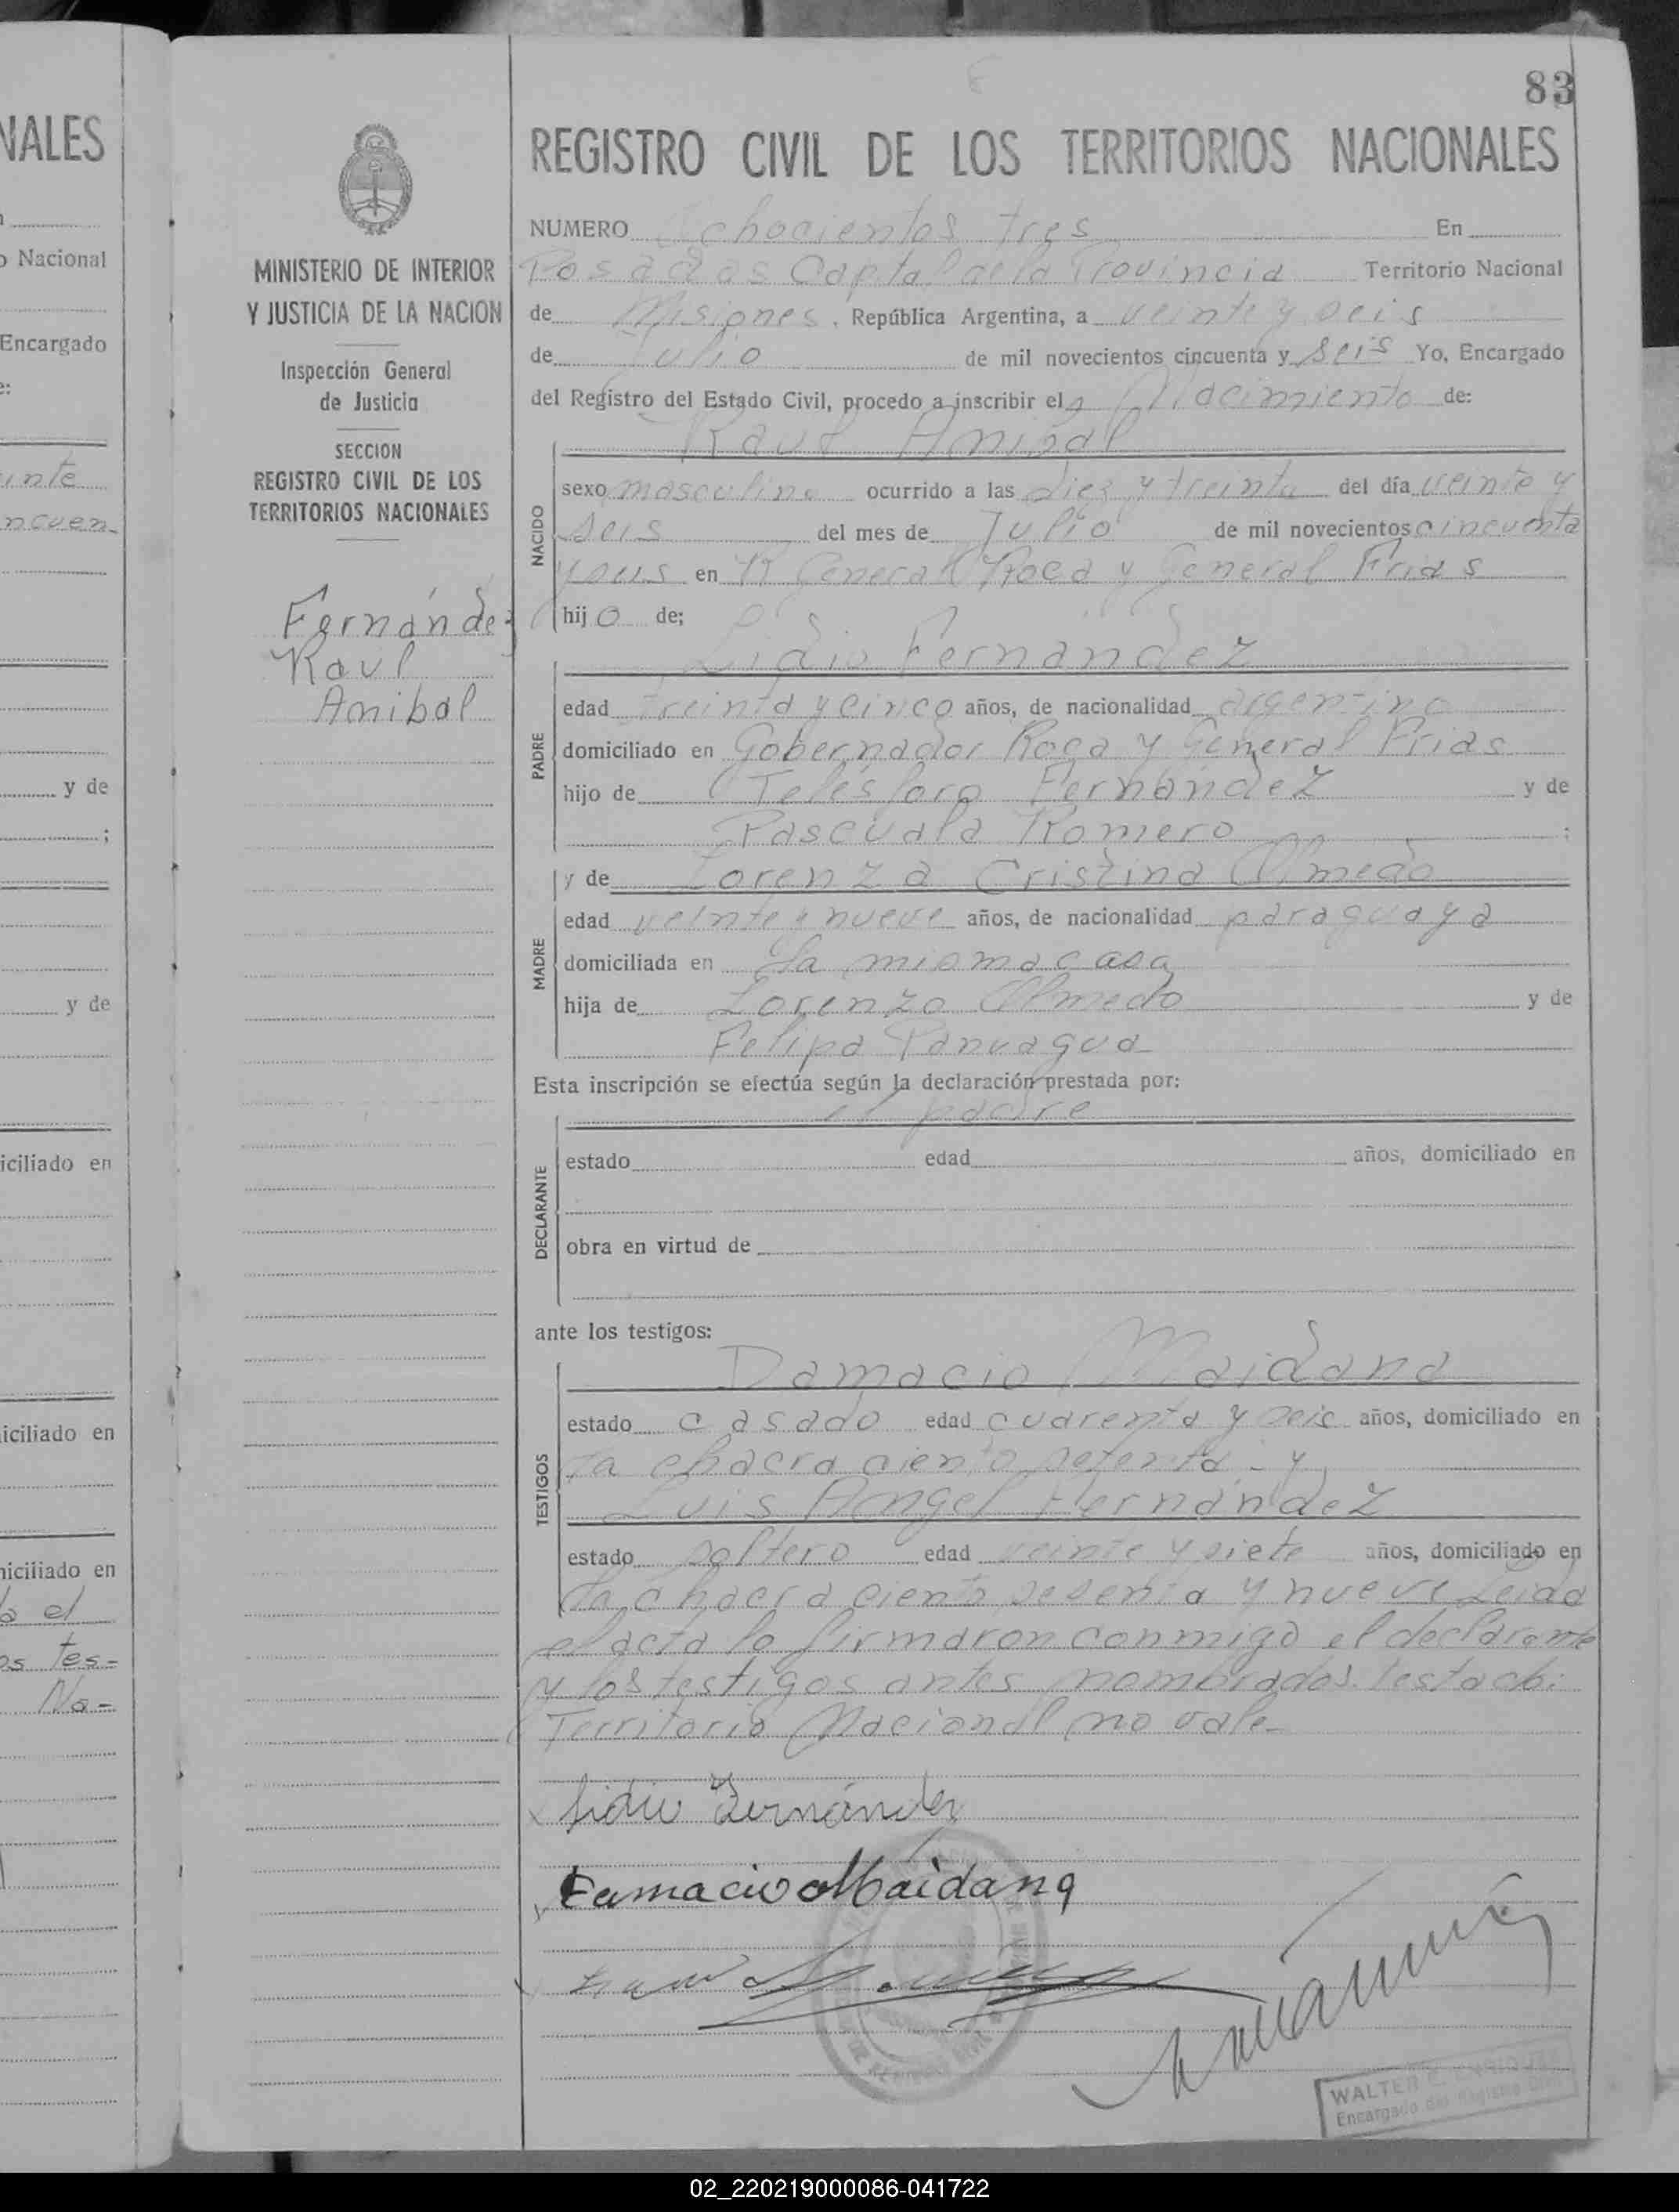 83
NALES
REGISTRO CIVIL DE LOS TERRITORIOS NACIONALES
MINISTERIO DE INTERIOR
Y JUSTICIA DE LA NACION
Inspección General
de Justicia
SECCION
REGISTRO CIVIL DE LOS
TERRITORIOS NACIONALES
Fernández
Raul
Anibal
o Nacional
Encargado
e:
inte
ncuen-
y de
;
y de
iciliado en
iciliado en
niciliado en
el
os tes-
Na-
NUMERO Ochocientos tres En
Posadas Capital de la Provincia Territorio Nacional
de Misiones, República Argentina, a veinte y seis
de Julio de mil novecientos cincuenta y seis Yo, Encargado
del Registro del Estado Civil, procedo a inscribir el Nacimiento de:
Raul Anibal
NACIDO
sexo masculino ocurrido a las diez y treinta del día veinte y
seis del mes de Julio de mil novecientos cincuenta
y seis en General Roca y General Frias
hijo de;
Lidio Fernández
PADRE
edad treinta y cinco años, de nacionalidad argentino
domiciliado en Gobernador Roca y General Frias
hijo de Telésforo Fernández y de
Pascuala Romero ;
y de Lorenza Cristina Olmedo
MADRE
edad veinte y nueve años, de nacionalidad paraguaya
domiciliada en la misma casa
hija de Lorenzo Olmedo y de
Felipa
Esta inscripción se efectúa según la declaración prestada por:
el padre
DECLARANTE
estado edad años, domiciliado en
obra en virtud de
ante los testigos:
Damacio Maidana
TESTIGOS
estado casado edad cuarenta y seis años, domiciliado en
la chacra ciento setenta - y
Luis Angel Fernández
estado soltero edad veinte y siete años, domiciliado en
la chacra ciento sesenta y nueve Leida
el acta la firmaron conmigo el declarante
y los testigos antes nombrados. testado:
Territorio Nacional no vale-
Lidio Fernández
Damacio Maidana
WALTER
Encargado del Registro Civil
02_220219000086-041722